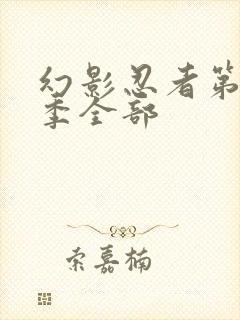 幻影忍者第
季全部
索嘉楠